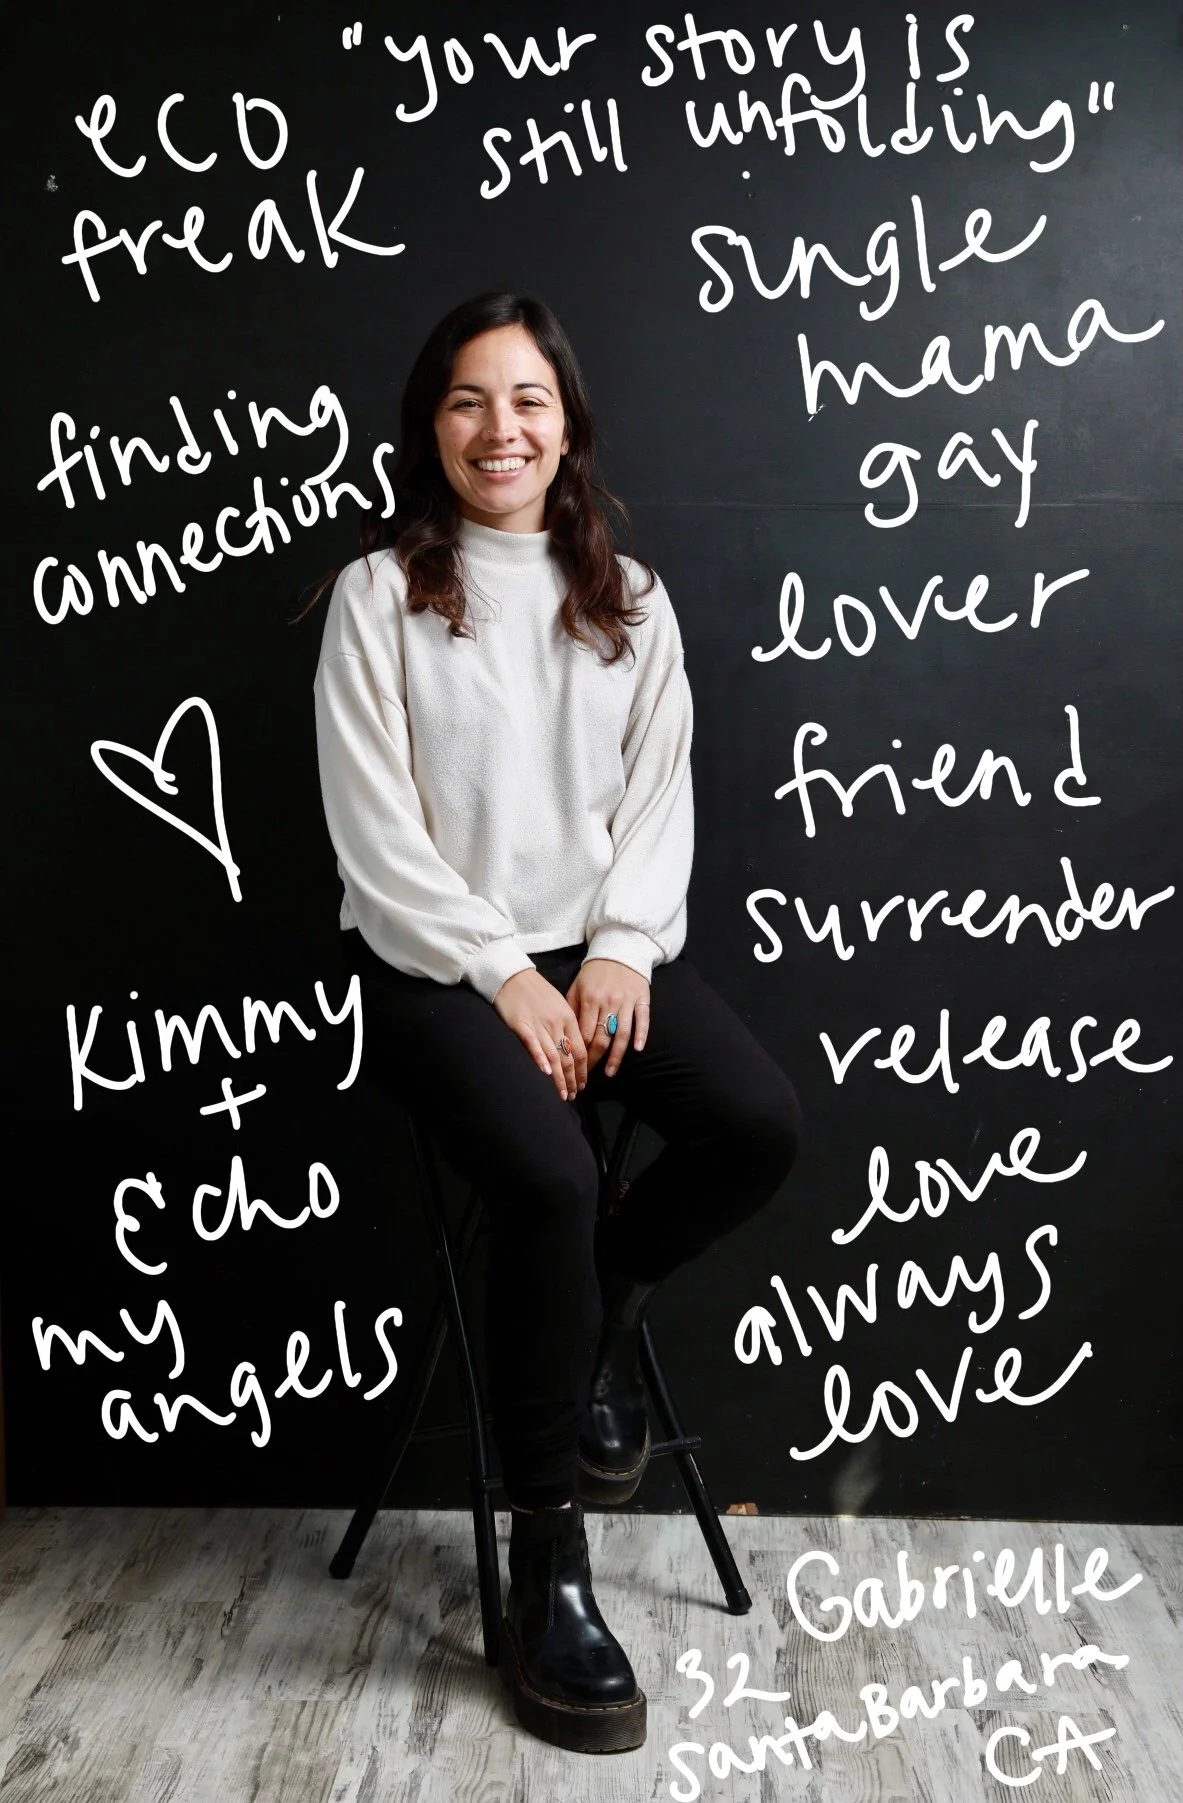 "your story is
still unfolding"
eco
freak
finding
connections
Kimmy
+
Echo
my
angels
single
mama
gay
lover
friend
surrender
release
love
always
love
Gabrielle
32
Santa Barbara
CA